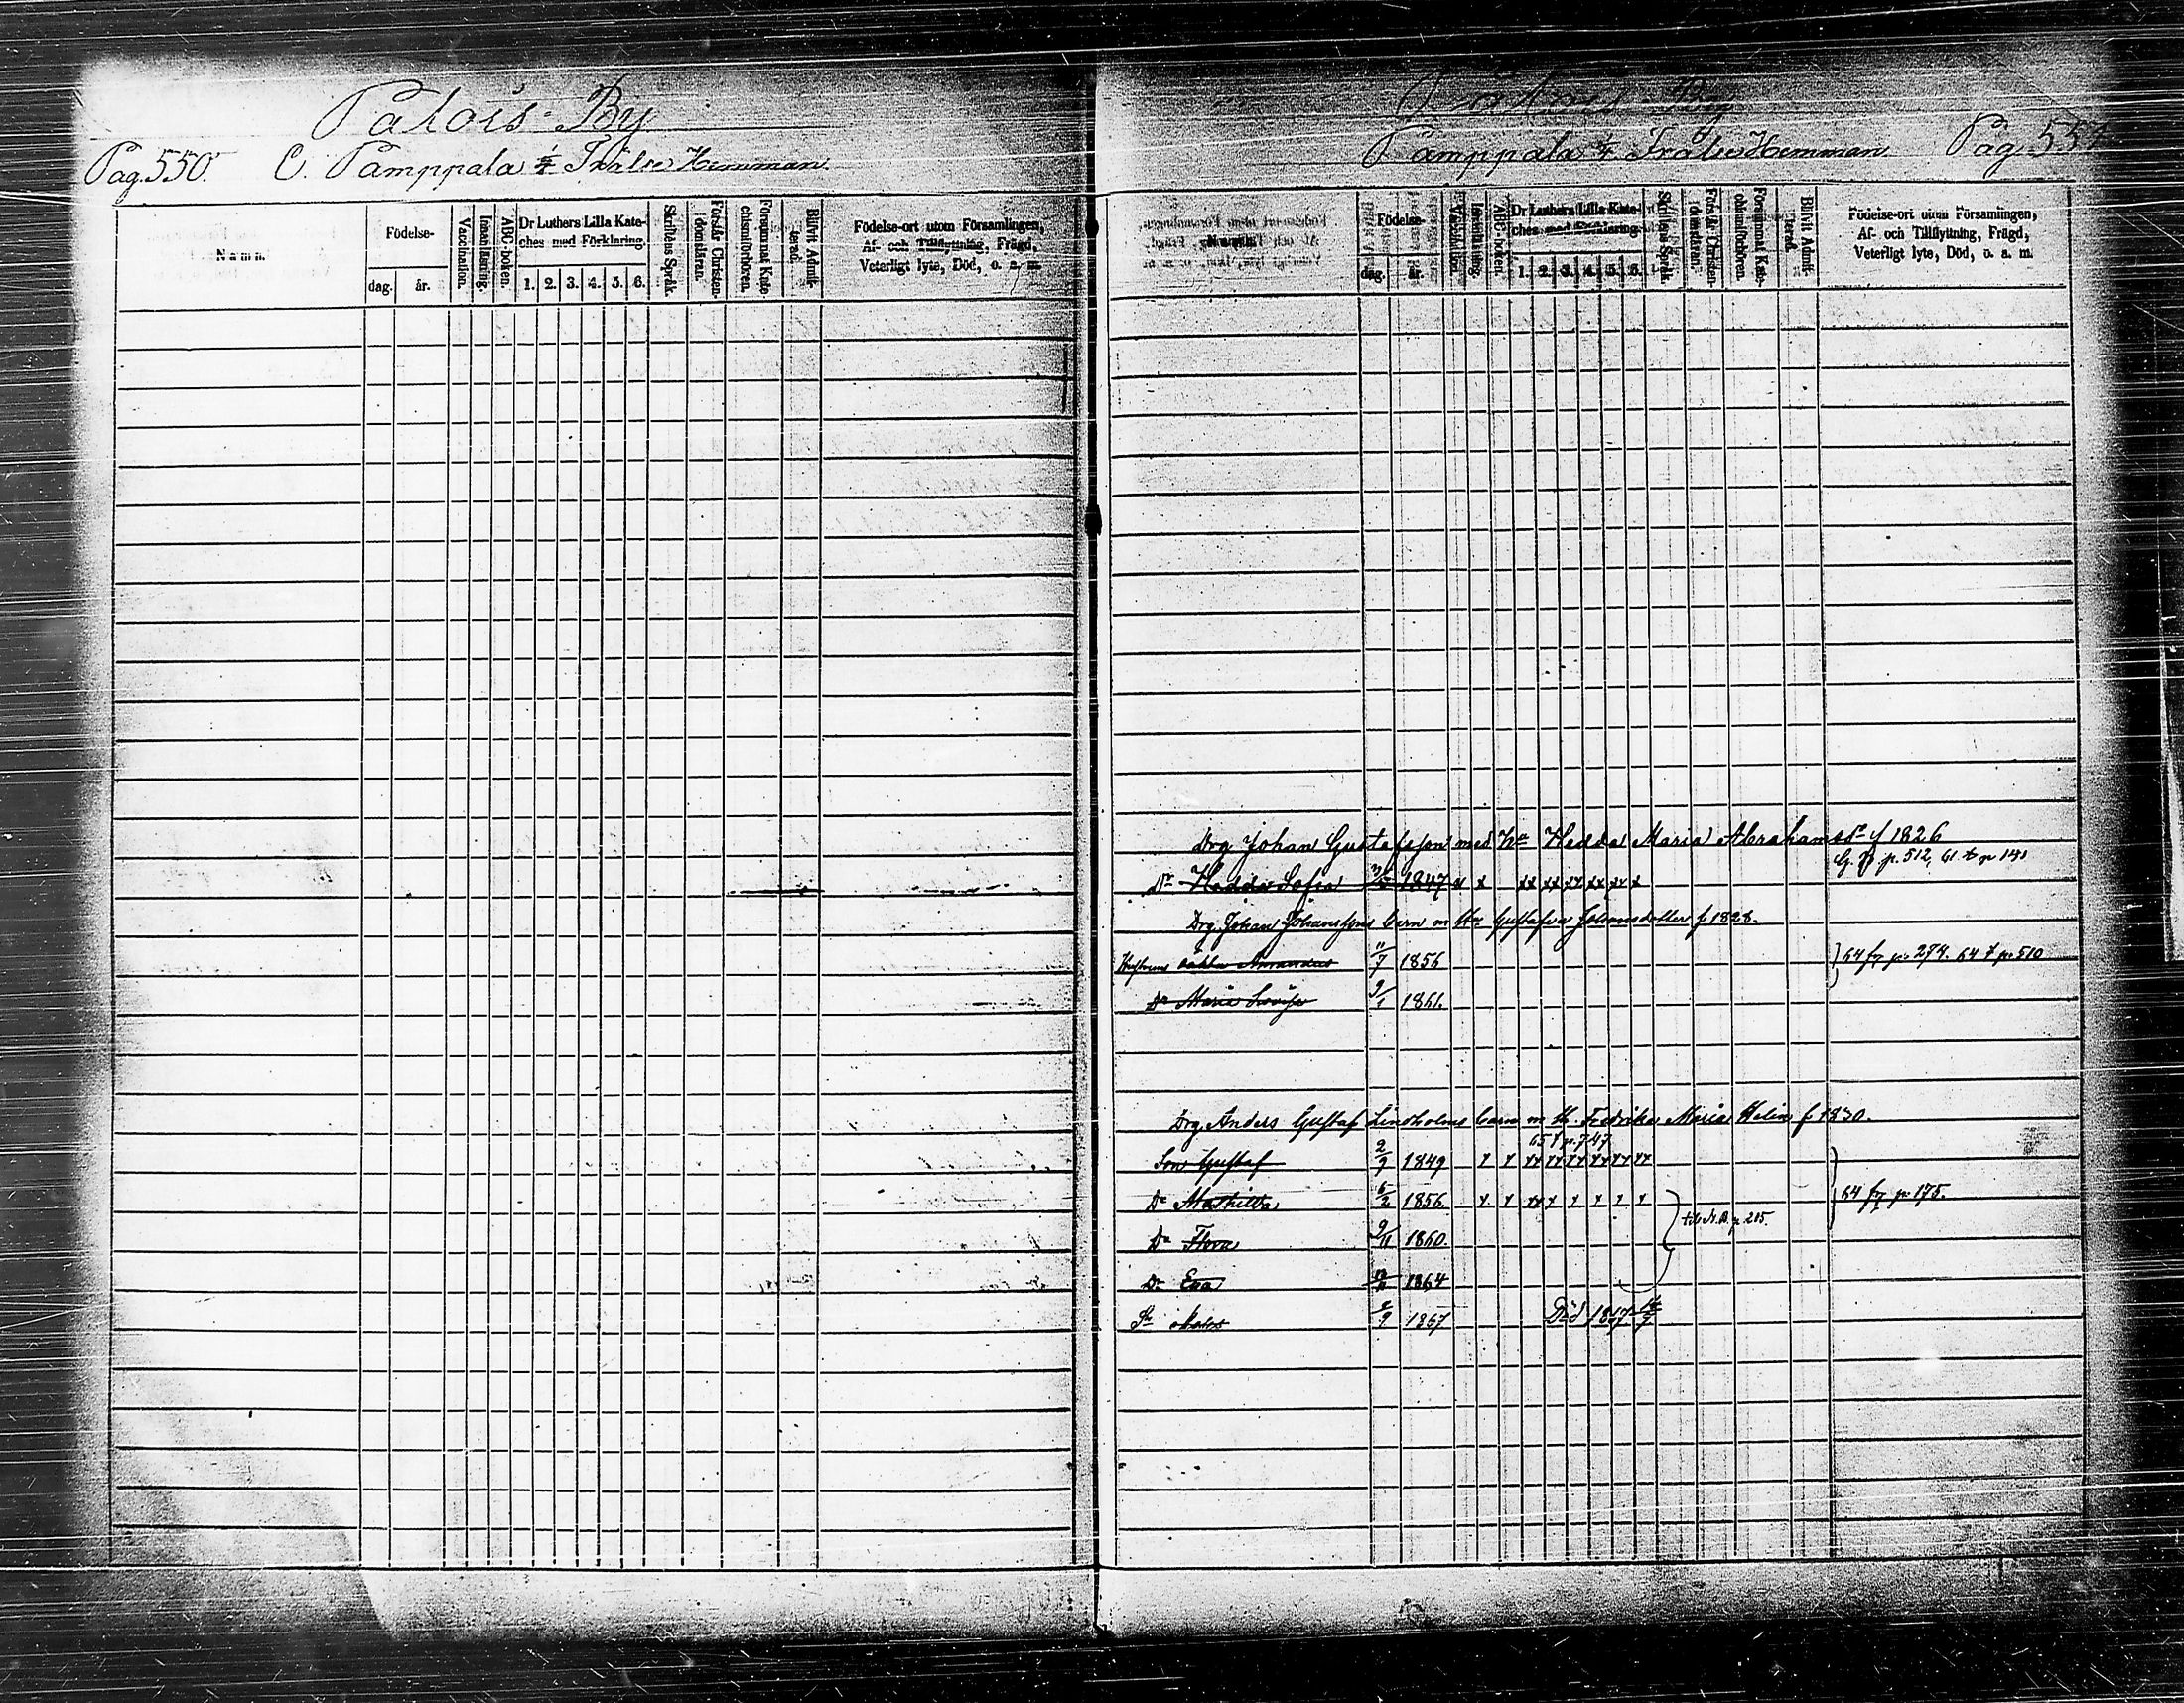 Palois By
Pag. 550. C. Pamppala 1/4 Frälse Hemman.
Namn.
Födelse-
dag. år.
Vaccination.
Innanläsning.
ABC-boken.
Dr Luthers Lilla Kate-
ches med Förklaring.
1. 2. 3. 4. 5. 6.
Skriftens Språk.
Förstår Christen-
domsläran.
Försummat Kate-
chismiförhören.
Blifvit Admit-
terad.
Födelse-ort utom Församlingen,
Af- och Tillflyttning, Frägd,
Veterligt lyte, Död, o. a. m.
By
Pamppala 1/4 Frälse Hemman Pag. 551
Födelse-
dag. år.
Vaccination.
Innanläsning.
ABC-boken.
Dr Luthers Lilla Kate-
ches med Förklaring.
1. 2. 3. 4. 5. 6.
Skriftens Språk.
Förstår Christen-
domsläran.
Försummat Kate-
chismiförhören.
Blifvit Admit-
terad.
Födelse-ort utom Församlingen,
Af- och Tillflyttning, Frägd,
Veterligt lyte, Död, o. a. m.
Drg Johan Gustafsson med Hu Hedda Maria Abrahamsdr f 1826
p. 512, 61 t p 141
Dr Hedda Sofia 1847 x x xx xx xx xx xx x
Drg. Johan Johanssons barn m Hu Gustafva Johansdotter f 1828.
Hustruns oäkta Amanda 11/7 1856 64 fr p. 274. 64 t p. 510
Dr Maria Lovisa 9/1 1861.
Drg. Anders Gustaf Lindholms barn m H. Fredrika Maria Helin f 1830.
65 t p. 747
Son Gustaf 2/9 1849 x x xx xx xx xx xx xx
Dr Mathilda 6/2 1856. x x xx x x x x x 64 fr p 175.
p 215.
Dr Flora 9/11 1860.
Dr Eva 1864
Sn Oskar 2/9 1867 Död 1867